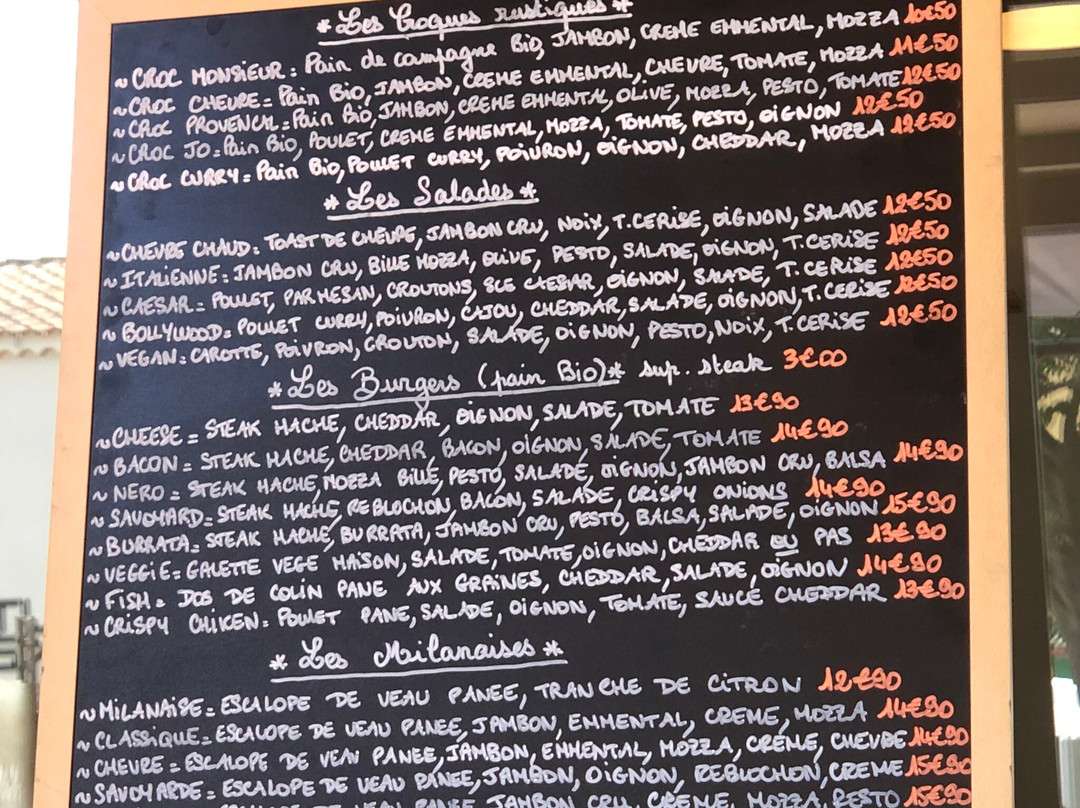 * Les Croques rustiques *
~ CROC MONSIEUR : Pain de campagne Bio, JAMBON, CREME EMMENTAL, MOZZA 10€50
~ CROC CHEVRE = Pain Bio, JAMBON, CREME EMMENTAL, CHEVRE, TOMATE, MOZZA 11€50
~ CROC PROVENCAL = Pain Bio, JAMBON, CREME EMMENTAL, OLIVE, MOZZA, PESTO, TOMATE 12€50
~ CROC JO = Pain Bio, POULET, CREME EMMENTAL, MOZZA, TOMATE, PESTO, OIGNON 12€50
~ CROC CURRY = Pain Bio, POULET CURRY, POIVRON, OIGNON, CHEDDAR, MOZZA 12€50
* Les Salades *
~ CHEVRE CHAUD : TOAST DE CHEVRE, JAMBON CRU, NOIX, T.CERISE, OIGNON, SALADE 12€50
~ ITALIENNE : JAMBON CRU, BILLE MOZZA, OLIVE, PESTO, SALADE, OIGNON, T.CERISE 12€50
~ CAESAR = POULET, PARMESAN, CROUTONS, SCE CAESAR, OIGNON, SALADE, T.CERISE 12€50
~ BOLLYWOOD = POULET CURRY, POIVRON, CAJOU, CHEDDAR, SALADE, OIGNON, T.CERISE 12€50
~ VEGAN : CAROTTE, POIVRON, CROUTON, SALADE, OIGNON, PESTO, NOIX, T.CERISE 12€50
* Les Burgers (pain Bio) * sup. steak 3€00
~ CHEESE = STEAK HACHE, CHEDDAR, OIGNON, SALADE, TOMATE 13€90
~ BACON = STEAK HACHE, CHEDDAR, BACON, OIGNON, SALADE, TOMATE 14€90
~ NERO = STEAK HACHE, MOZZA BILLE, PESTO, SALADE, OIGNON, JAMBON CRU, BALSA 14€90
~ SAVOYARD = STEAK HACHE, REBLOCHON, BACON, SALADE, CRISPY ONIONS 14€90
~ BURRATA = STEAK HACHE, BURRATA, JAMBON CRU, PESTO, BALSA, SALADE, OIGNON 15€90
~ VEGGIE = GALETTE VEGE MAISON, SALADE, TOMATE, OIGNON, CHEDDAR OU PAS 13€90
~ FISH = DOS DE COLIN PANE AUX GRAINES, CHEDDAR, SALADE, OIGNON 14€90
~ CRISPY CHIKEN = POULET PANE, SALADE, OIGNON, TOMATE, SAUCE CHEDDAR 13€90
* Les Milanaises *
~ MILANAISE = ESCALOPE DE VEAU PANEE, TRANCHE DE CITRON 12€90
~ CLASSIQUE = ESCALOPE DE VEAU PANEE, JAMBON, EMMENTAL, CREME, MOZZA 14€90
~ CHEVRE = ESCALOPE DE VEAU PANEE, JAMBON, EMMENTAL, MOZZA, CREME, CHEVRE 14€90
~ SAVOYARDE = ESCALOPE DE VEAU PANEE, JAMBON, OIGNON, REBLOCHON, CREME 15€90
DE VEAU PANEE, JAMBON CRU, CREME, MOZZA, PESTO 15€90